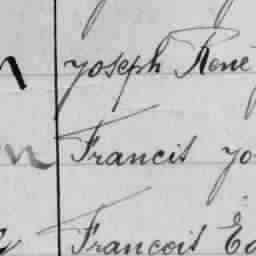 Joseph René
Francis Jo
François Ed